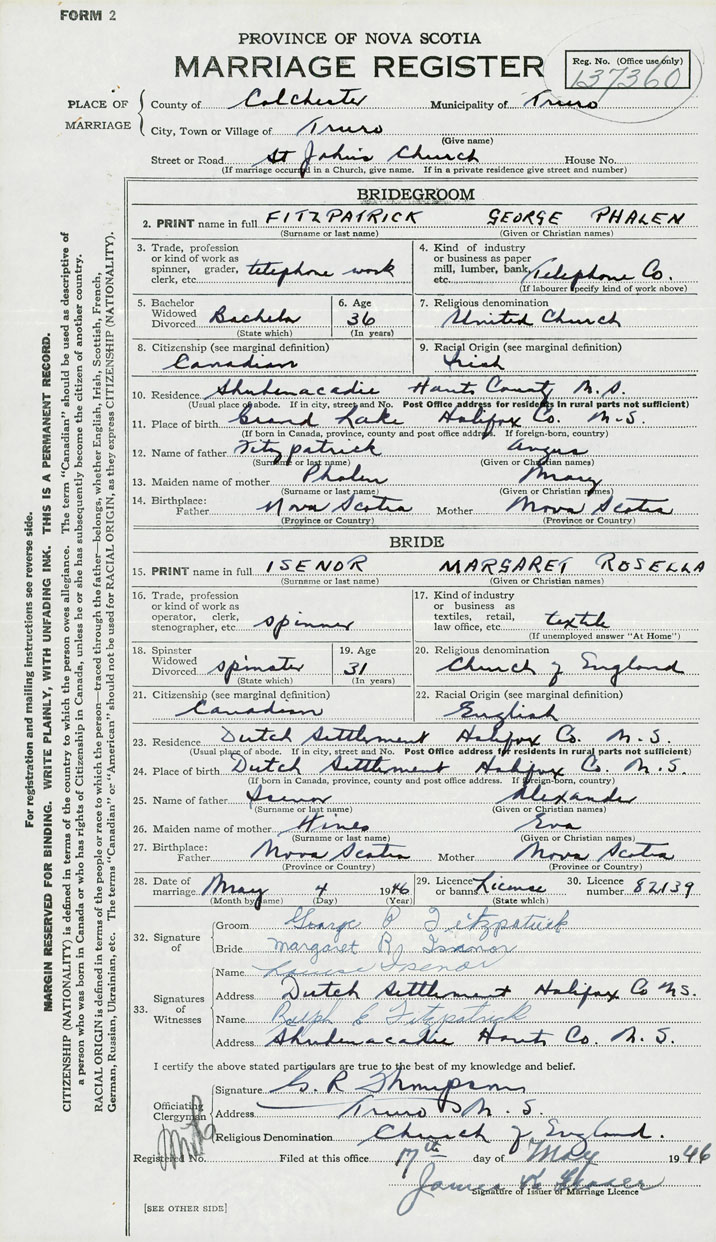 FORM 2
PROVINCE OF NOVA SCOTIA
MARRIAGE REGISTER
Reg. No. (Office use only)
137360
PLACE OF MARRIAGE
County of Colchester Municipality of Truro
City, Town or Village of Truro
(Give name)
Street or Road St John's Church House No.
(If marriage occurred in a Church, give name. If in a private residence give street and number)
BRIDEGROOM
2. PRINT name in full FITZPATRICK GEORGE PHALEN
(Surname or last name) (Given or Christian names)
3. Trade, profession or kind of work as spinner, grader, clerk, etc. telephone work
4. Kind of industry or business as paper mill, lumber, bank, etc. Telephone Co.
(If labourer specify kind of work above)
5. Bachelor Widowed Divorced Bachelor
(State which)
6. Age 36
(In years)
7. Religious denomination
United Church
8. Citizenship (see marginal definition)
Canadian
9. Racial Origin (see marginal definition)
Irish
10. Residence Shubenacadie Hants County N.S.
(Usual place of abode. If in city, street and No. Post Office address for residents in rural parts not sufficient)
11. Place of birth Grand Lake Halifax Co. N.S.
(If born in Canada, province, county and post office address. If foreign-born, country)
12. Name of father Fitzpatrick Angus
(Surname or last name) (Given or Christian names)
13. Maiden name of mother Phalen Mary
(Surname or last name) (Given or Christian names)
14. Birthplace: Father Nova Scotia Mother Nova Scotia
(Province or Country) (Province or Country)
BRIDE
15. PRINT name in full ISENOR MARGARET ROSELLA
(Surname or last name) (Given or Christian names)
16. Trade, profession or kind of work as operator, clerk, stenographer, etc. spinner
17. Kind of industry or business as textiles, retail, law office, etc. textile
(If unemployed answer "At Home")
18. Spinster Widowed Divorced spinster
(State which)
19. Age 31
(In years)
20. Religious denomination
Church of England
21. Citizenship (see marginal definition)
Canadian
22. Racial Origin (see marginal definition)
English
23. Residence Dutch Settlement Halifax Co. N.S.
(Usual place of abode. If in city, street and No. Post Office address for residents in rural parts not sufficient)
24. Place of birth Dutch Settlement Halifax Co. N.S.
(If born in Canada, province, county and post office address. If foreign-born, country)
25. Name of father Isenor Alexander
(Surname or last name) (Given or Christian names)
26. Maiden name of mother Hines Eva
(Surname or last name) (Given or Christian names)
27. Birthplace: Father Nova Scotia Mother Nova Scotia
(Province or Country) (Province or Country)
28. Date of marriage May 4 1946
(Month by name) (Day) (Year)
29. Licence or banns License
(State which)
30. Licence number 82139
32. Signature of
Groom George P Fitzpatrick
Bride Margaret R. Isenor
33. Signatures of Witnesses
Name Louise Isenor
Address Dutch Settlement Halifax Co N.S.
Name Ralph E Fitzpatrick
Address Shubenacadie Hants Co. N.S.
I certify the above stated particulars are true to the best of my knowledge and belief.
Officiating Clergyman
Signature G. R Thompson
Address Truro N.S.
Religious Denomination Church of England.
Registered No. Filed at this office 17th day of May 1946
James
Signature of Issuer of Marriage Licence
[SEE OTHER SIDE]
For registration and mailing instructions see reverse side.
MARGIN RESERVED FOR BINDING. WRITE PLAINLY, WITH UNFADING INK. THIS IS A PERMANENT RECORD.
CITIZENSHIP (NATIONALITY) is defined in terms of the country to which the person owes allegiance. The term "Canadian" should be used as descriptive of
a person who was born in Canada or who has rights of Citizenship in Canada, unless he or she has subsequently become the citizen of another country.
RACIAL ORIGIN is defined in terms of the people or race to which the person—traced through the father—belongs, whether English, Irish, Scottish, French,
German, Russian, Ukrainian, etc. The terms "Canadian" or "American" should not be used for RACIAL ORIGIN, as they express CITIZENSHIP (NATIONALITY).